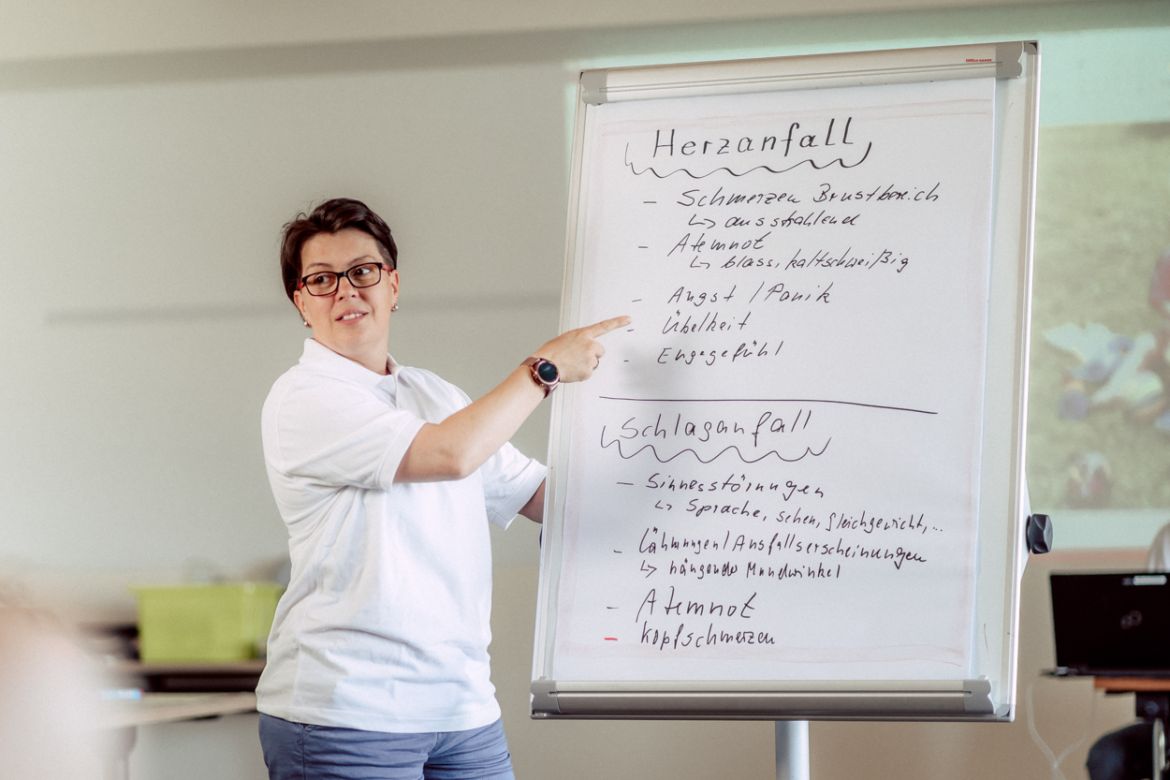 Herzanfall
- Schmerzen Brustbereich
↳ ausstrahlend
- Atemnot
↳ blass, kaltschweißig
- Angst / Panik
- Übelkeit
- Engegefühl
Schlaganfall
- Sinnesstörungen
↳ Sprache, sehen, Gleichgewicht, ...
- Lähmungen / Ausfallserscheinungen
↳ hängender Mundwinkel
- Atemnot
- Kopfschmerzen